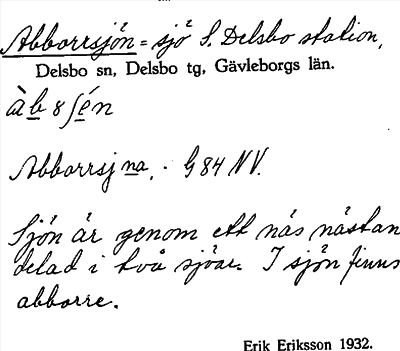 Abborrsjön = sjö S. Delsbo station,
Delsbo sn, Delsbo tg, Gävleborgs län.
àb8ʃén
Abborrsjna. · G 84 NV.
Sjön är genom ett näs nästan
delad i två sjöar. I sjön finns
abborre.
Erik Eriksson 1932.